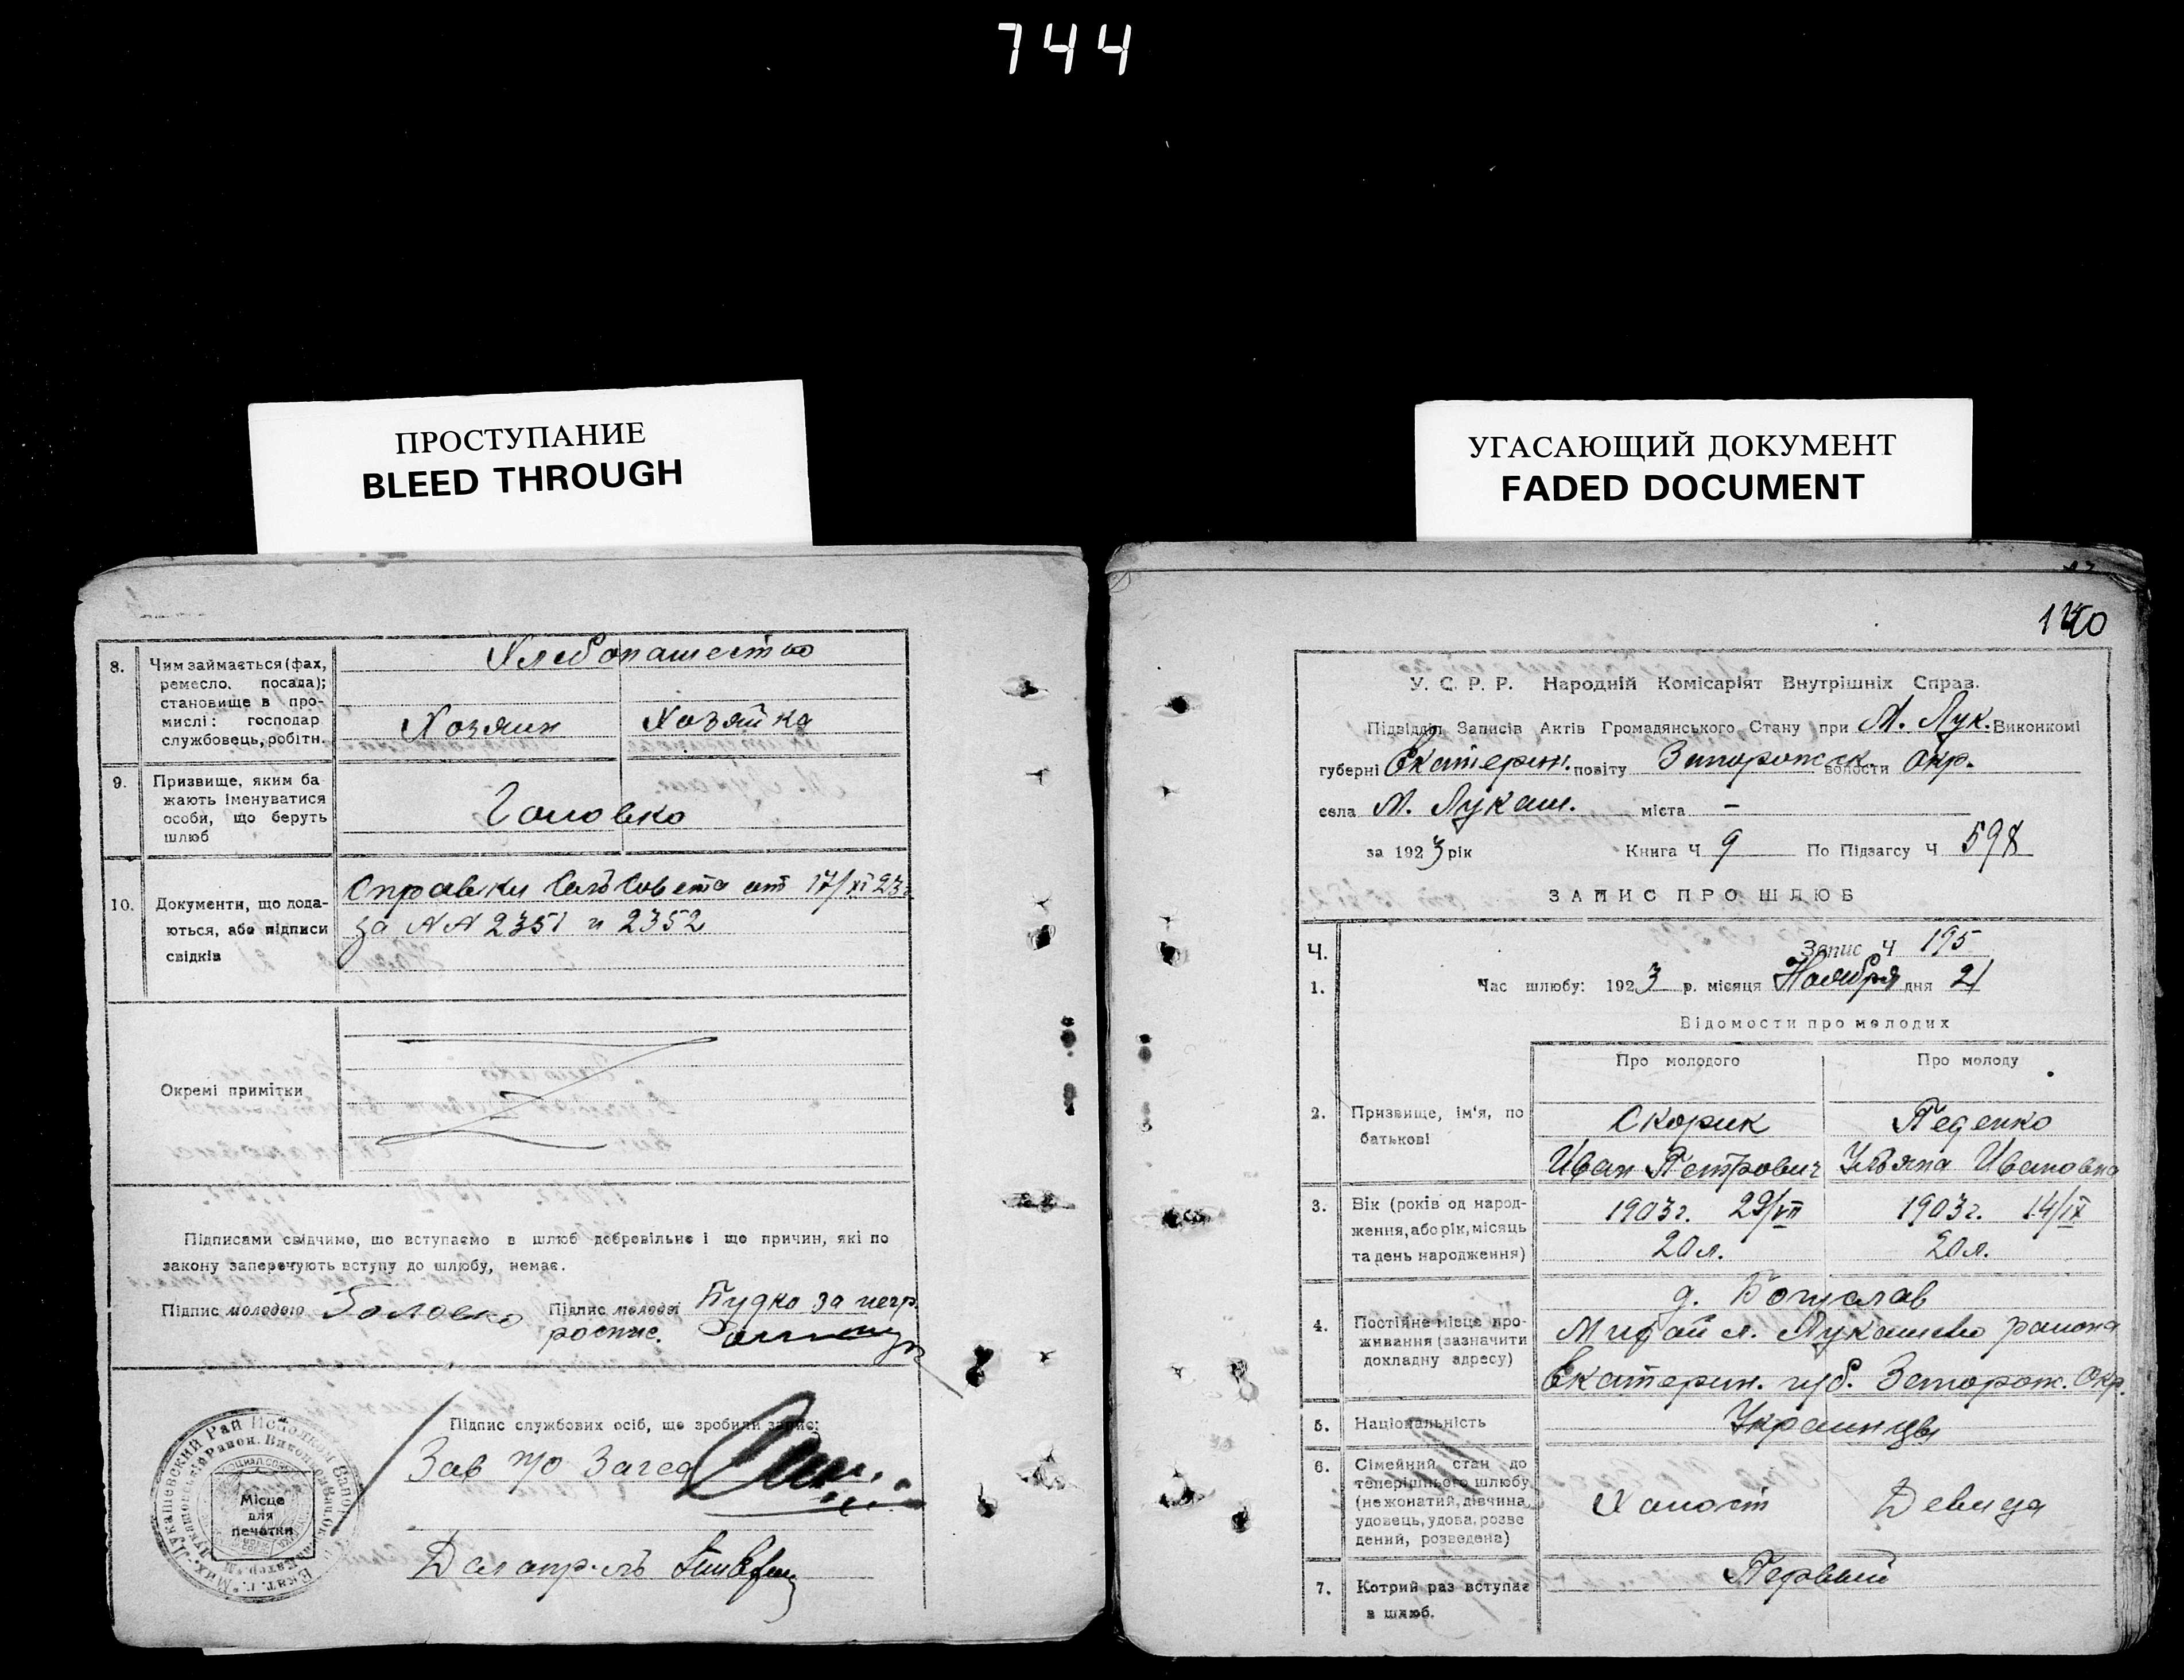 744
ПРОСТУПАНИЕ
BLEED THROUGH
УГАСАЮЩИЙ ДОКУМЕНТ
FADED DOCUMENT
8. Чим займається (фах, ремесло. посада); становище в про-мислі: господар службовець, робітн.
Хлебопашество
Хозяин Хозяйка
9. Призвище, яким ба-жають іменуватися особи, що беруть шлюб
Головко
10. Документи, що дода-ються, або підписи свідків
Справки СельСовета от 17/XI 23г.
за NN 2351 и 2352
Окремі примітки
Підписами свідчимо, що вступаємо в шлюб добровільно і що причин, які по
закону заперечують вступу до шлюбу, немає.
Підпис молодого Головко Підпис молодої Пудко за негр.
роспис.
Підпис службових осіб, що зробили запис:
Зав п/о Загса
Місце
для
печатки
140
У. С. Р. Р. Народній Комісаріят Внутрішніх Справ.
Підвідділ Записів Актів Громадянського Стану при М. Лук. Виконкомі
губерні Екатерин. повіту Запорожск. волости Окр.
села М. Лукаш. міста —
за 1923 рік Книга Ч 9 По Підзагсу Ч 598
ЗАПИС ПРО ШЛЮБ
Ч. Запис Ч 195
1. Час шлюбу: 1923 р. місяця Ноября дня 21
Відомости про молодих
Про молодого Про молоду
2. Призвище, ім'я, по батькові
Скорик Педенко
Иван Петрович Ульяна Ивановна
3. Вік (років од народ-ження, або рік, місяць та день народження)
1903г. 29/VII 1903г. 14/IX
20л. 20л.
4. Постійне місце про-живання (зазначити докладну адресу)
д. Богуслав
Михайл. Лукашево района
Екатерин. губ. Запорож. Окр.
5. Національність
Украинцы
6. Сімейний стан до теперішнього шлюбу (не жонатий, дівчина, удовець, удова, розве дений, розведена)
Холост Девица
7. Котрий раз вступає в шлюб.
Первый